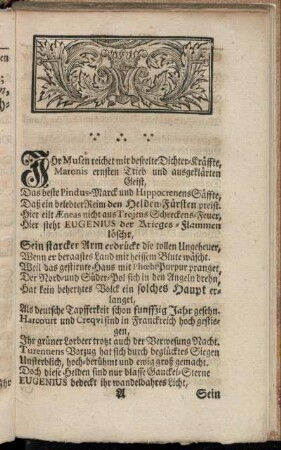 Ihr Musen reichet mir beseelte Dichter-Kräffte,
Maronis ernsten Trieb und ausgeklärten
Geist,
Das beste Pindus-Marck und Hippocrenens Säffte,
Daß ein belebter Reim den Helden-Fürsten preist.
Hier eilt Æneas nicht aus Trojens Schreckens-Feuer,
Hier steht EUGENIUS der Krieges-Flammen
löscht,
Sein starcker Arm erdrückt die tollen Ungeheuer,
Wenn er beraastes Land mit heissem Blute wäscht.
Weil das gestirnte Haus mit Phœbi Purpur pranget,
Der Nord-und Süder-Pol sich in den Angeln drehn,
Hat kein behertztes Volck ein solches Haupt er-
langet,
Als deutsche Tapfferkeit schon funffzig Jahr gesehn.
Harcourt und Creqvi sind in Franckreich hoch gestie-
gen,
Ihr grüner Lorbeer trotzt auch der Verwesung Macht.
Turennens Vorzug hat sich durch beglücktes Siegen
Unsterblich, hoch-berühmt und ewig groß gemacht.
Doch diese Helden sind nur blasse Gauckel-Sterne
EUGENIUS bedeckt ihr wandelbahres Licht,
A Sein